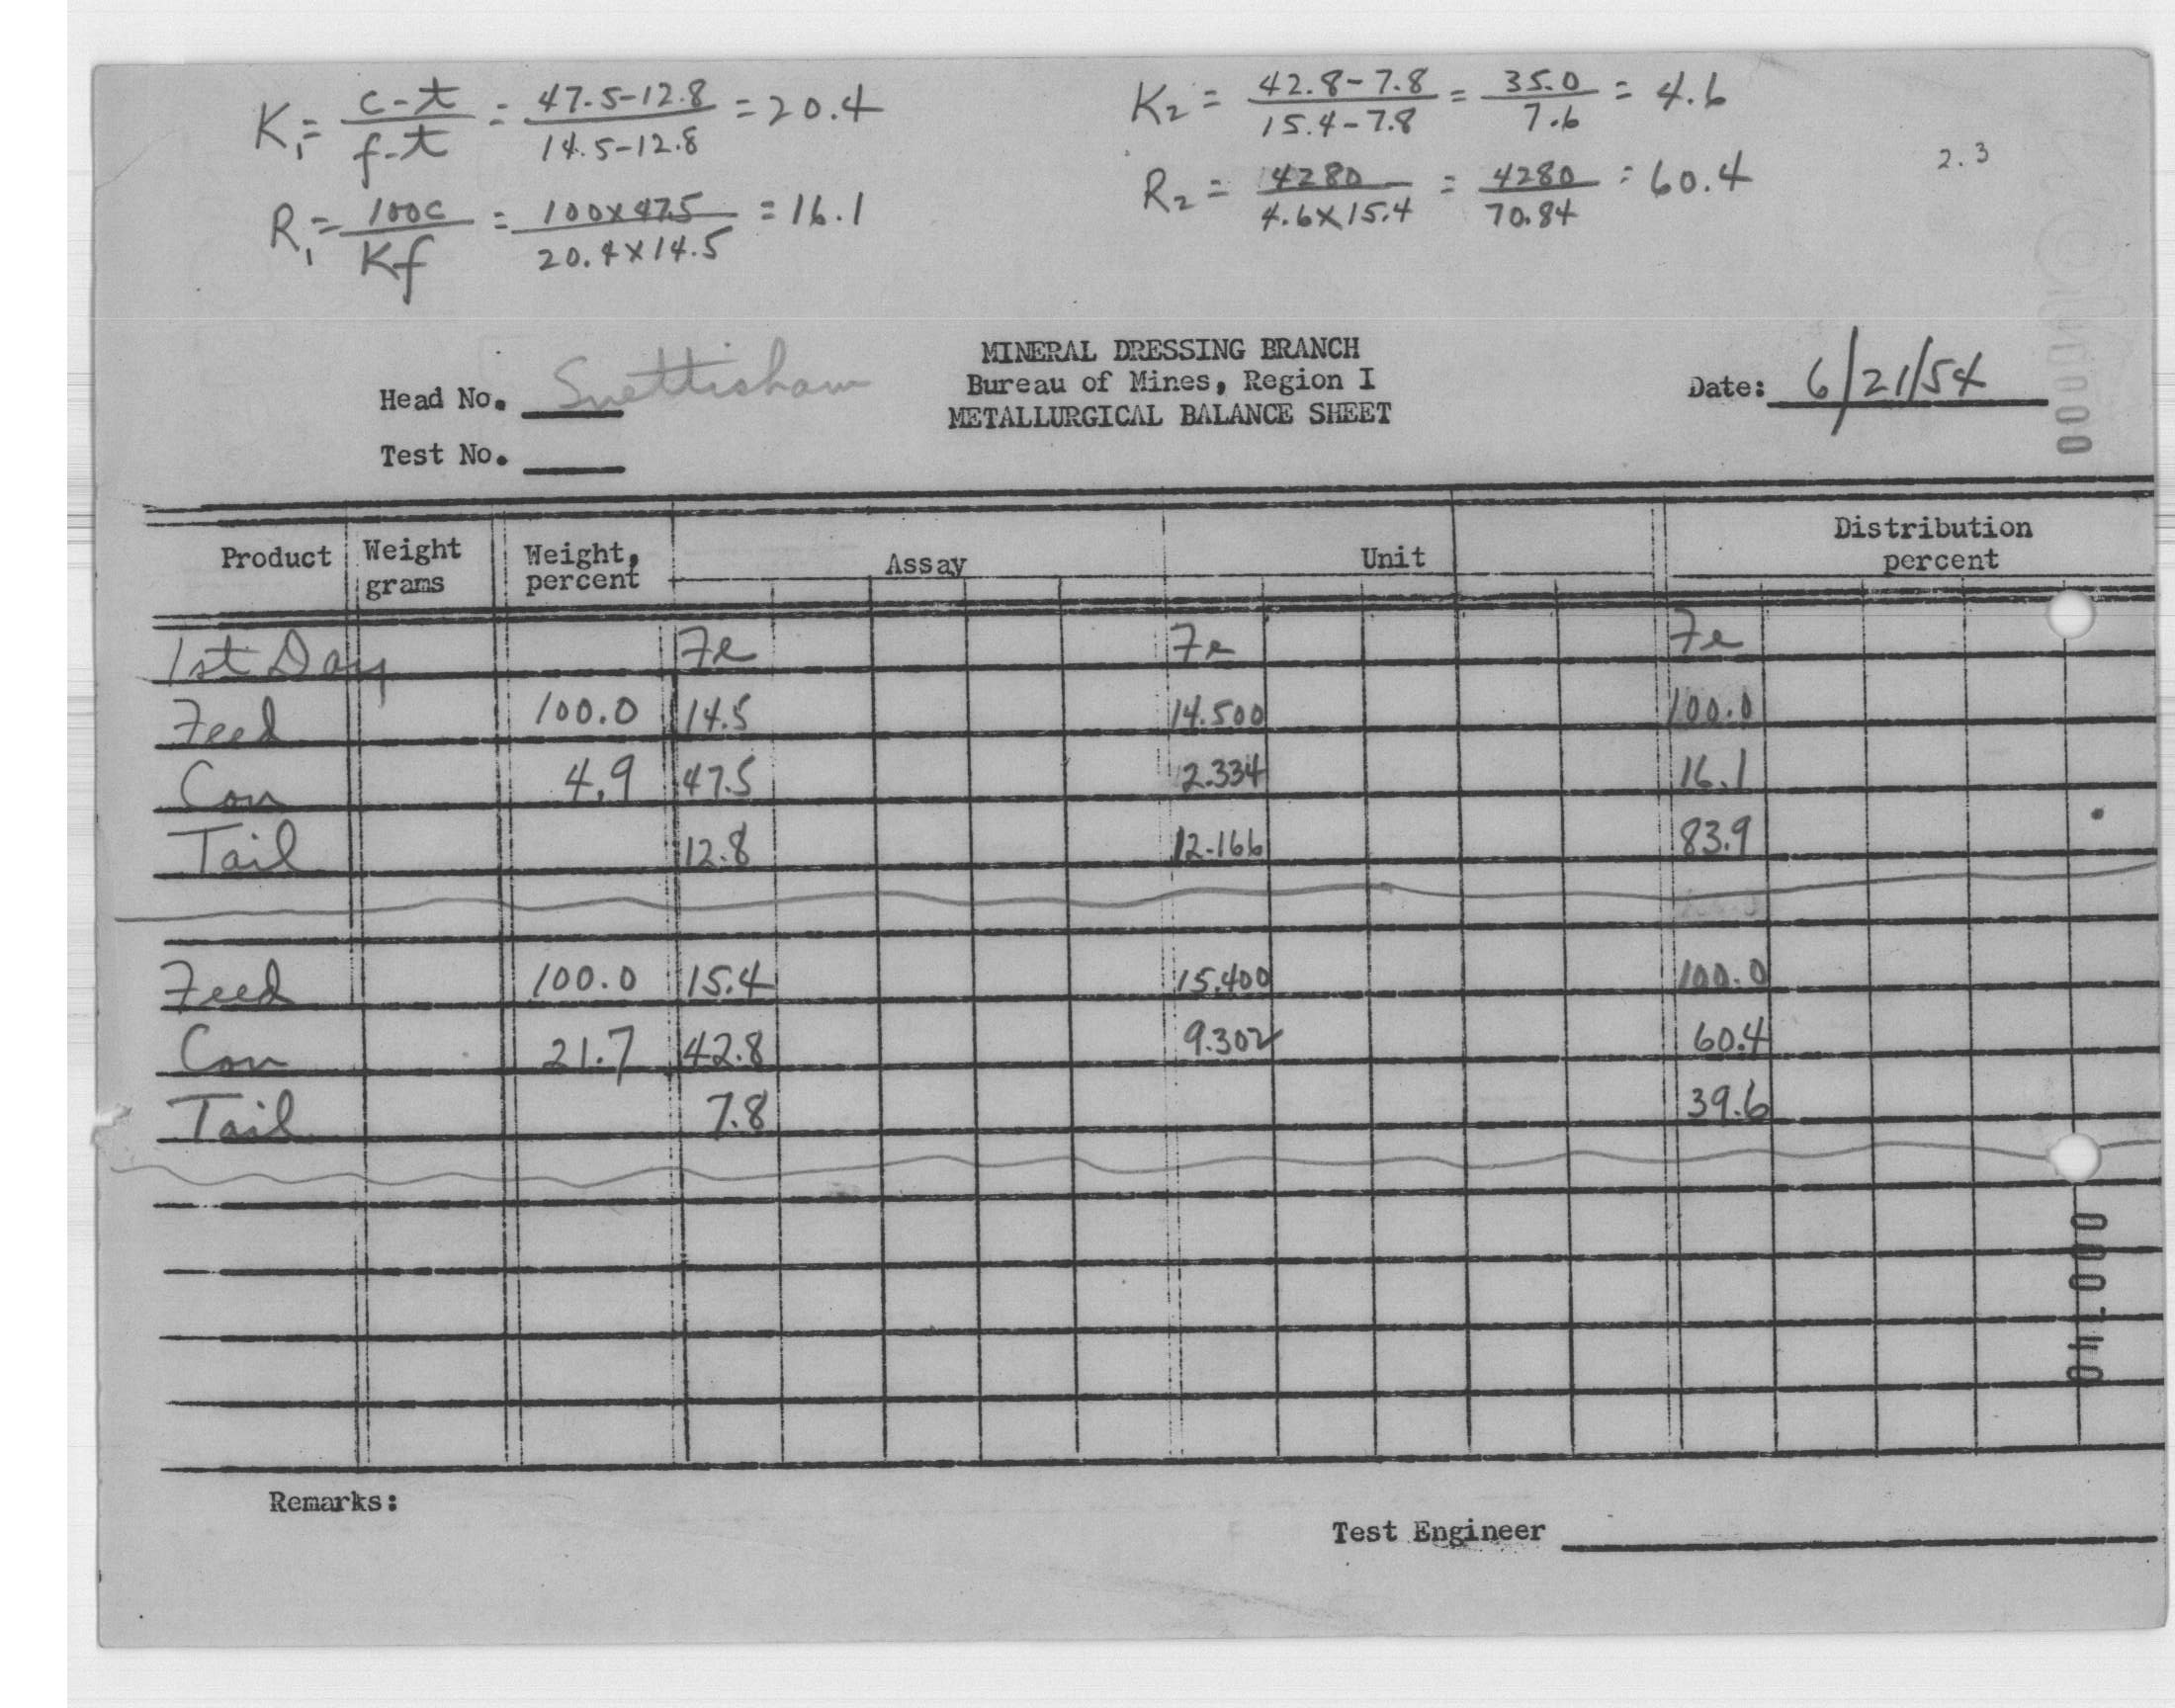 K₁ = c-t / f-t = 47.5-12.8 / 14.5-12.8 = 20.4
K₂ = 42.8-7.8 / 15.4-7.8 = 35.0 / 7.6 = 4.6
R₁ = 100c / Kf = 100x47.5 / 20.4x14.5 = 16.1
R₂ = 4280 / 4.6x15.4 = 4280 / 70.84 = 60.4
2.3
MINERAL DRESSING BRANCH
Bureau of Mines, Region I
METALLURGICAL BALANCE SHEET
Head No. Snettisham
Test No.
Date: 6/21/54
Product Weight grams Weight, percent Assay Unit Distribution percent
1st Day Fe Fe Fe
Feed 100.0 14.5 14.500 100.0
Con 4.9 47.5 2.334 16.1
Tail 12.8 12.166 83.9
Feed 100.0 15.4 15.400 100.0
Con 21.7 42.8 9.302 60.4
Tail 7.8 39.6
Remarks:
Test Engineer